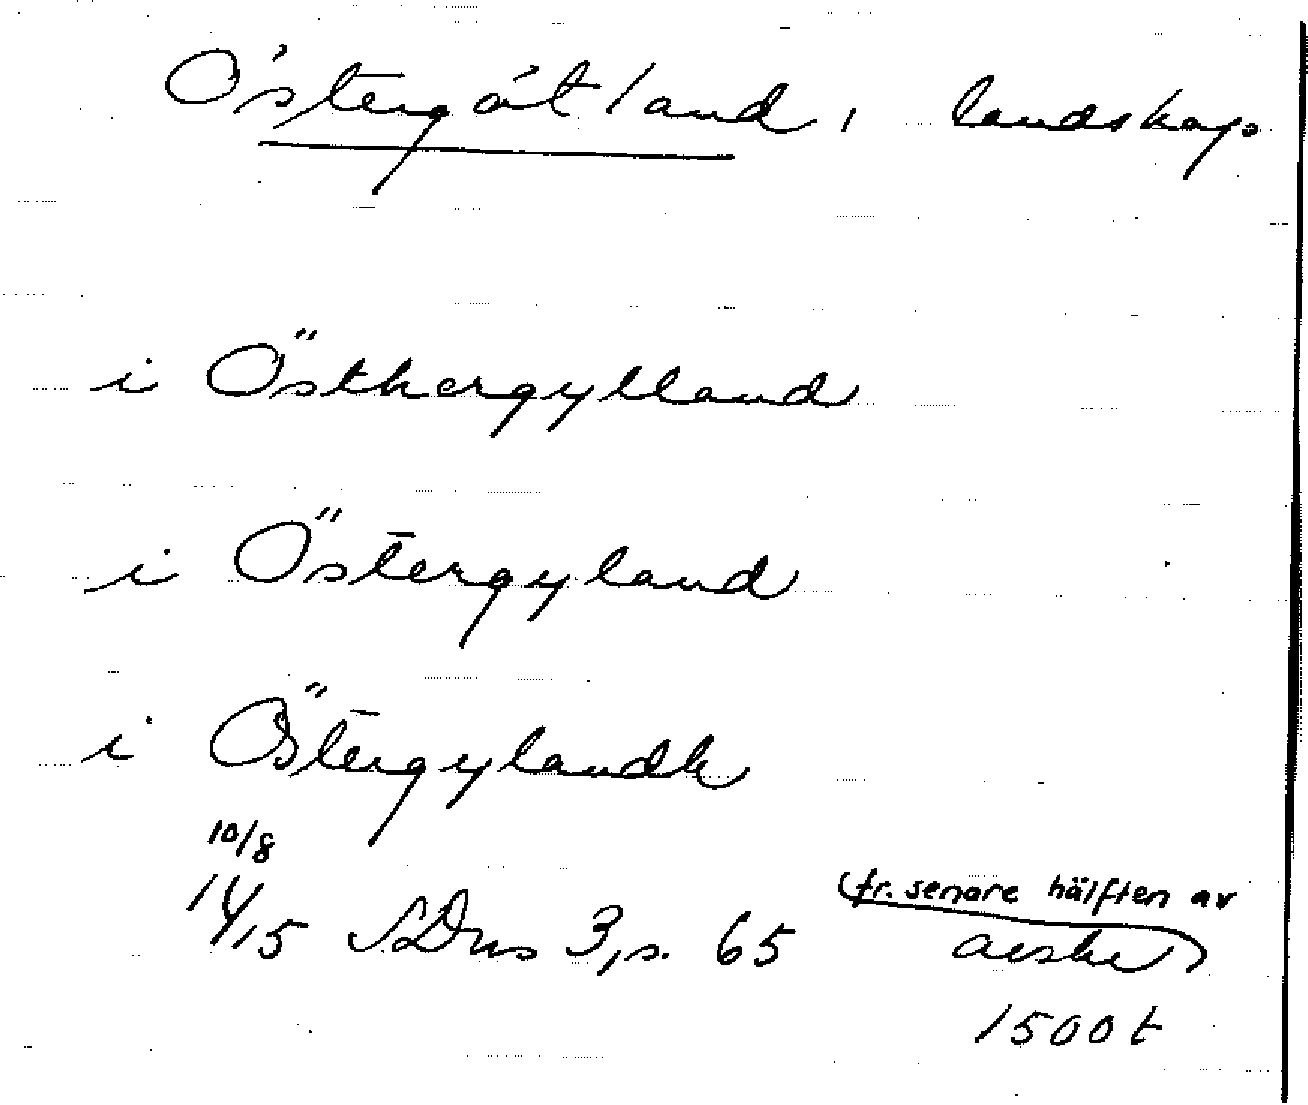 Östergötland, landskap
i Östhergylland
i Östergyland
i Östergylandh
10/8
1415 SDns 3, s. 65
(fr. senare hälften av
avskr)
1500 t